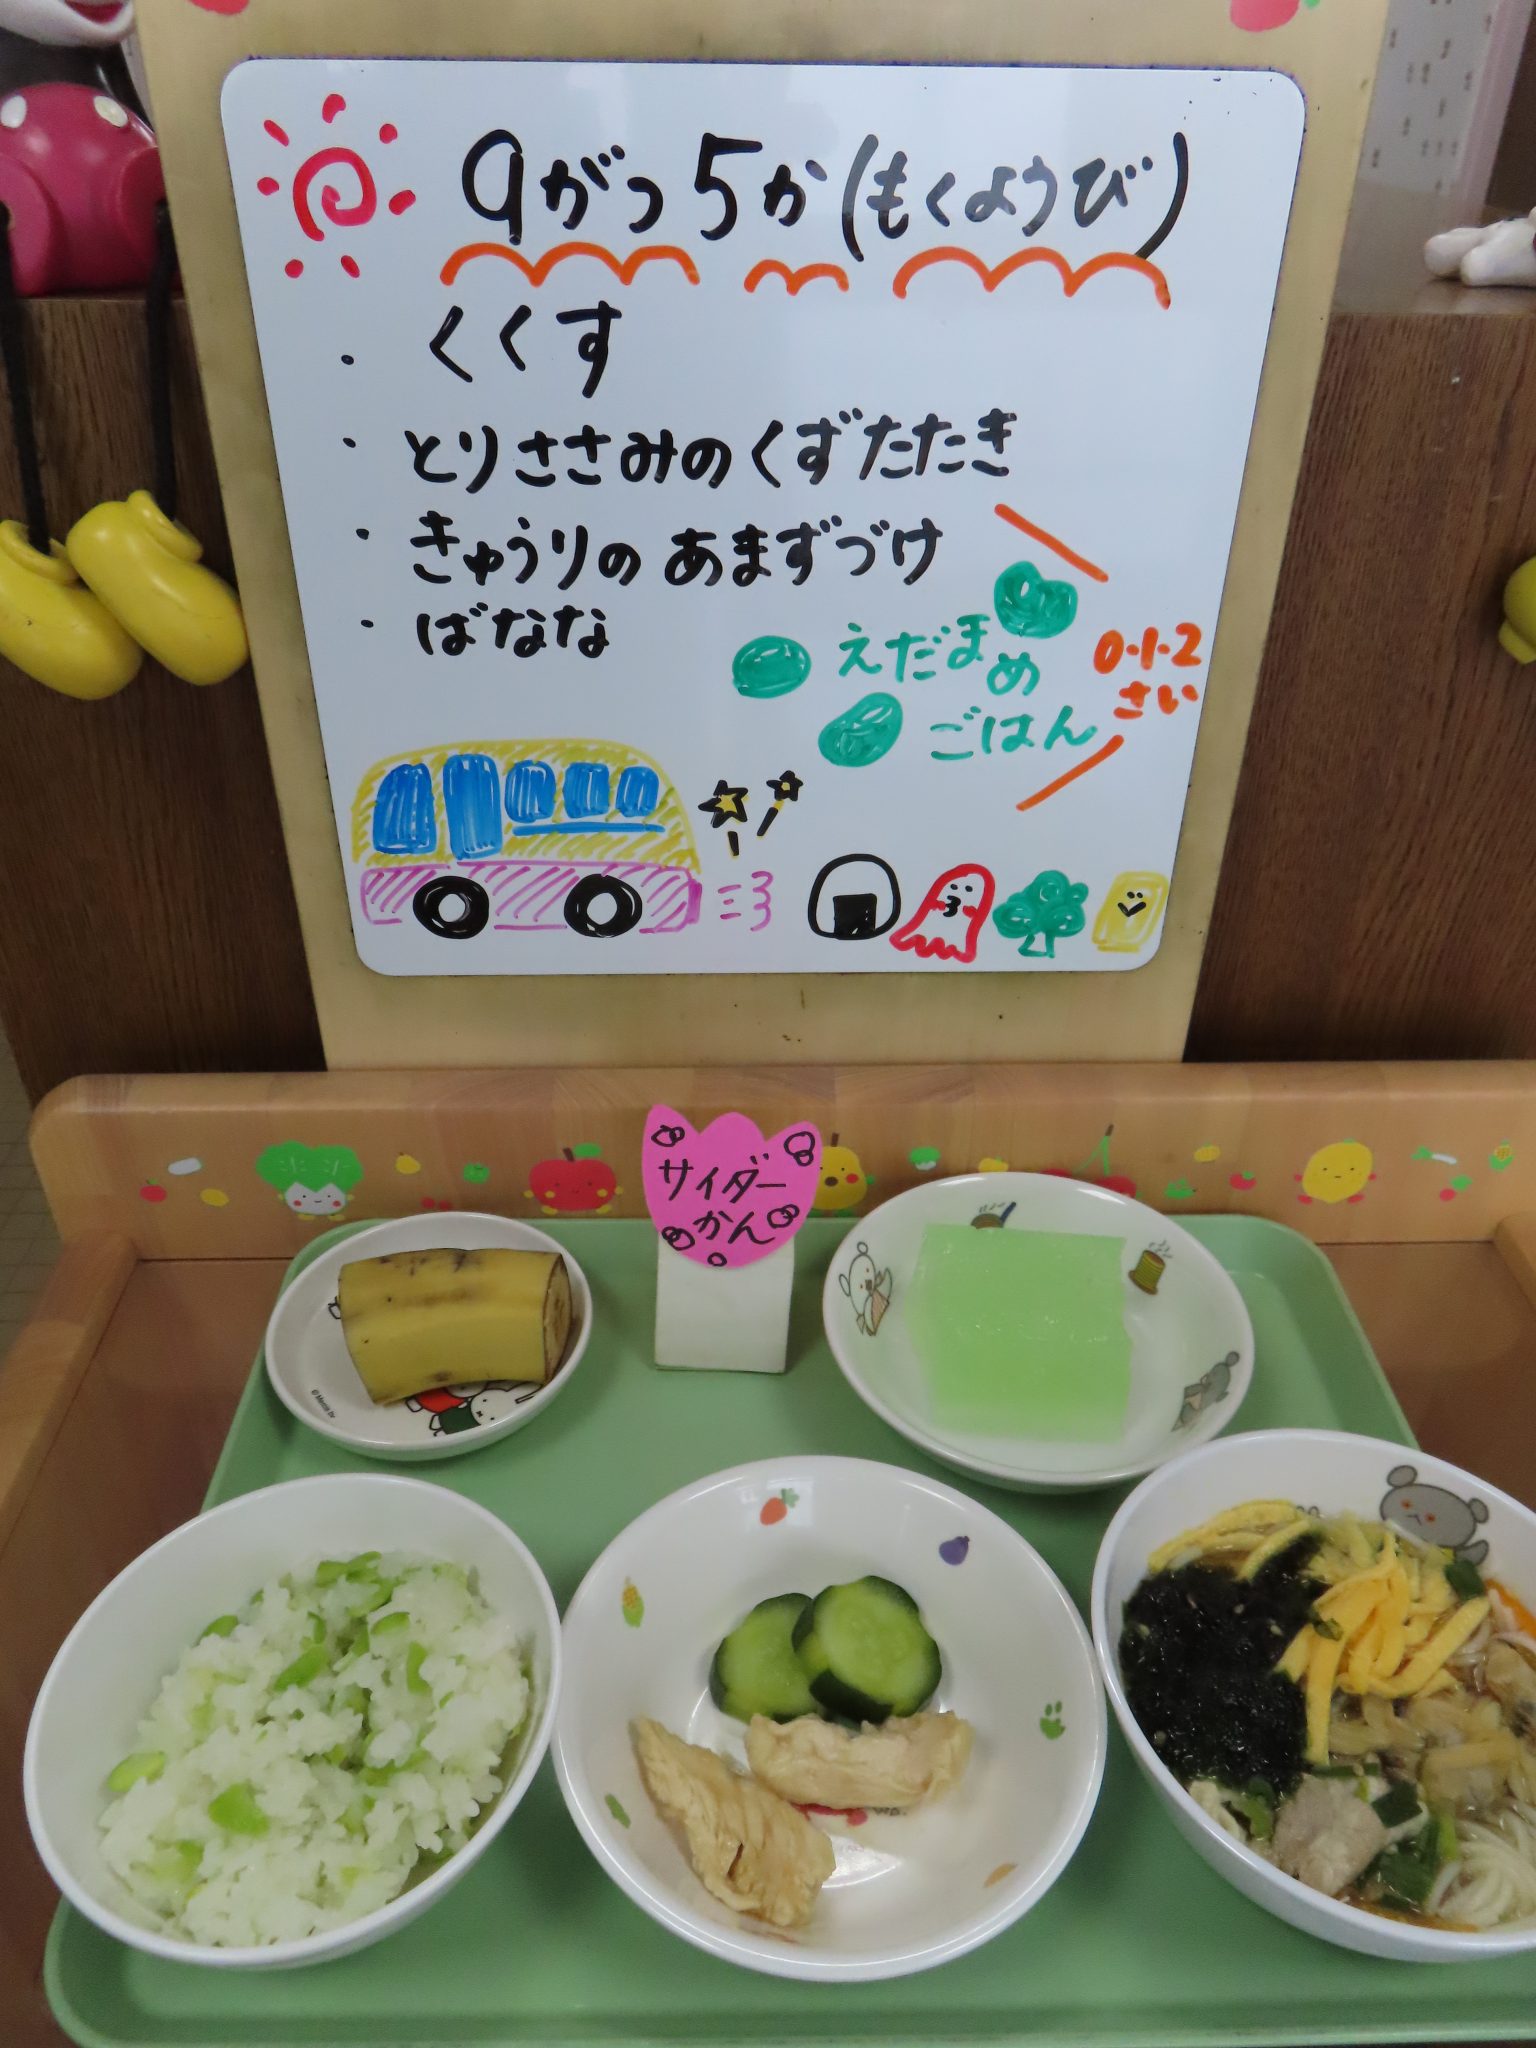 9がつ5か(もくようび)
・ くくす
・ とりささみのくずたたき
・ きゅうりの あまずづけ
・ ばなな
えだまめ
ごはん
0・1・2
さい
サイダー
かん